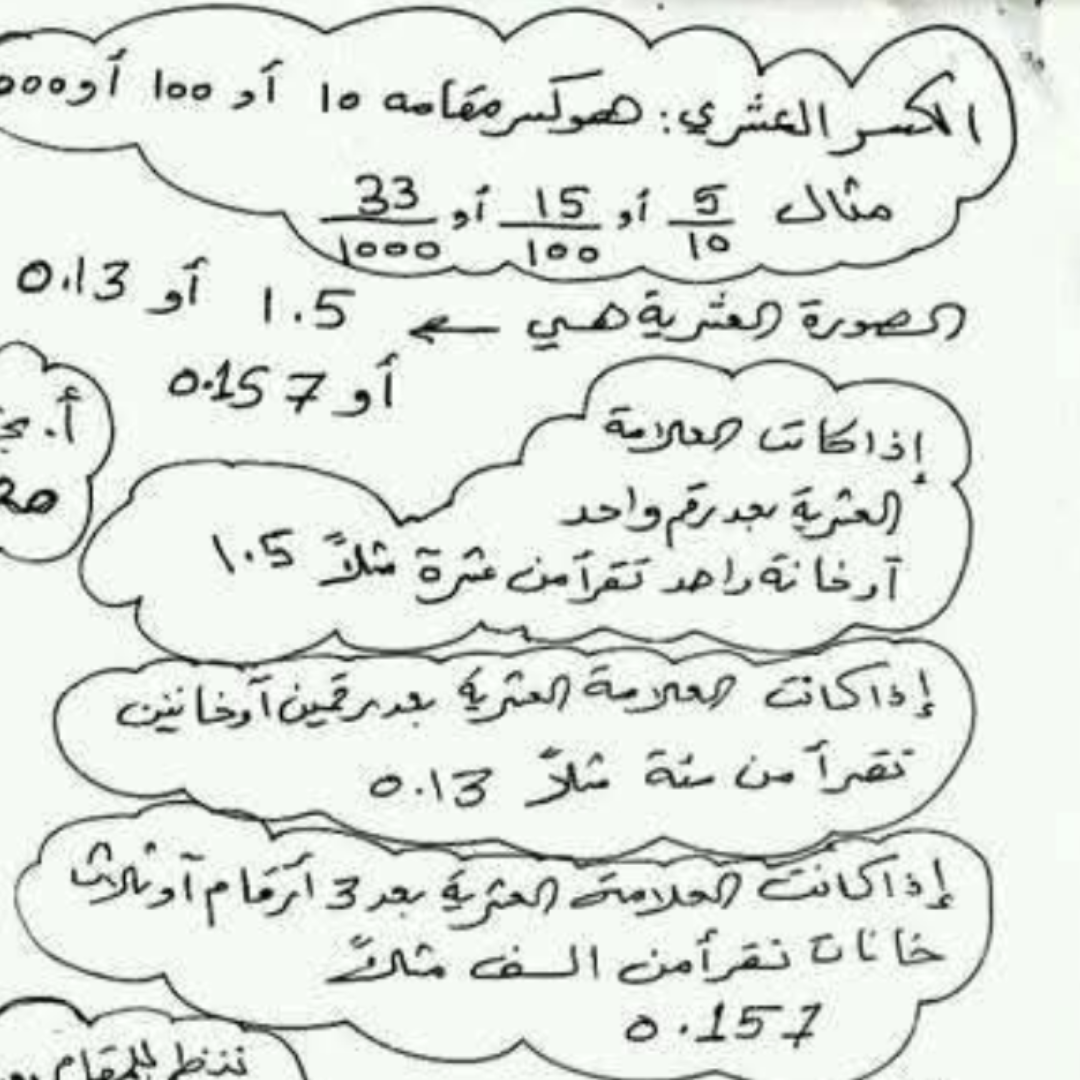 الكسر العشري: هو كسر مقامه 10 أو 100 أو 000
مثال 5/10 أو 15/100 أو 33/1000
الصورة العشرية هي ← 1.5 أو 0.13
أو 0.157
إذا كانت العلامة
العشرية بعد رقم واحد
أو خانة واحد تقرأ من عشرة مثلاً 1.5
أ.
إذا كانت العلامة العشرية بعد رقمين أو خانتين
تقرأ من مئة مثلاً 0.13
إذا كانت العلامة العشرية بعد 3 أرقام أو ثلاث
خانات تقرأ من الف مثلاً
0.157
ننظر للمقام